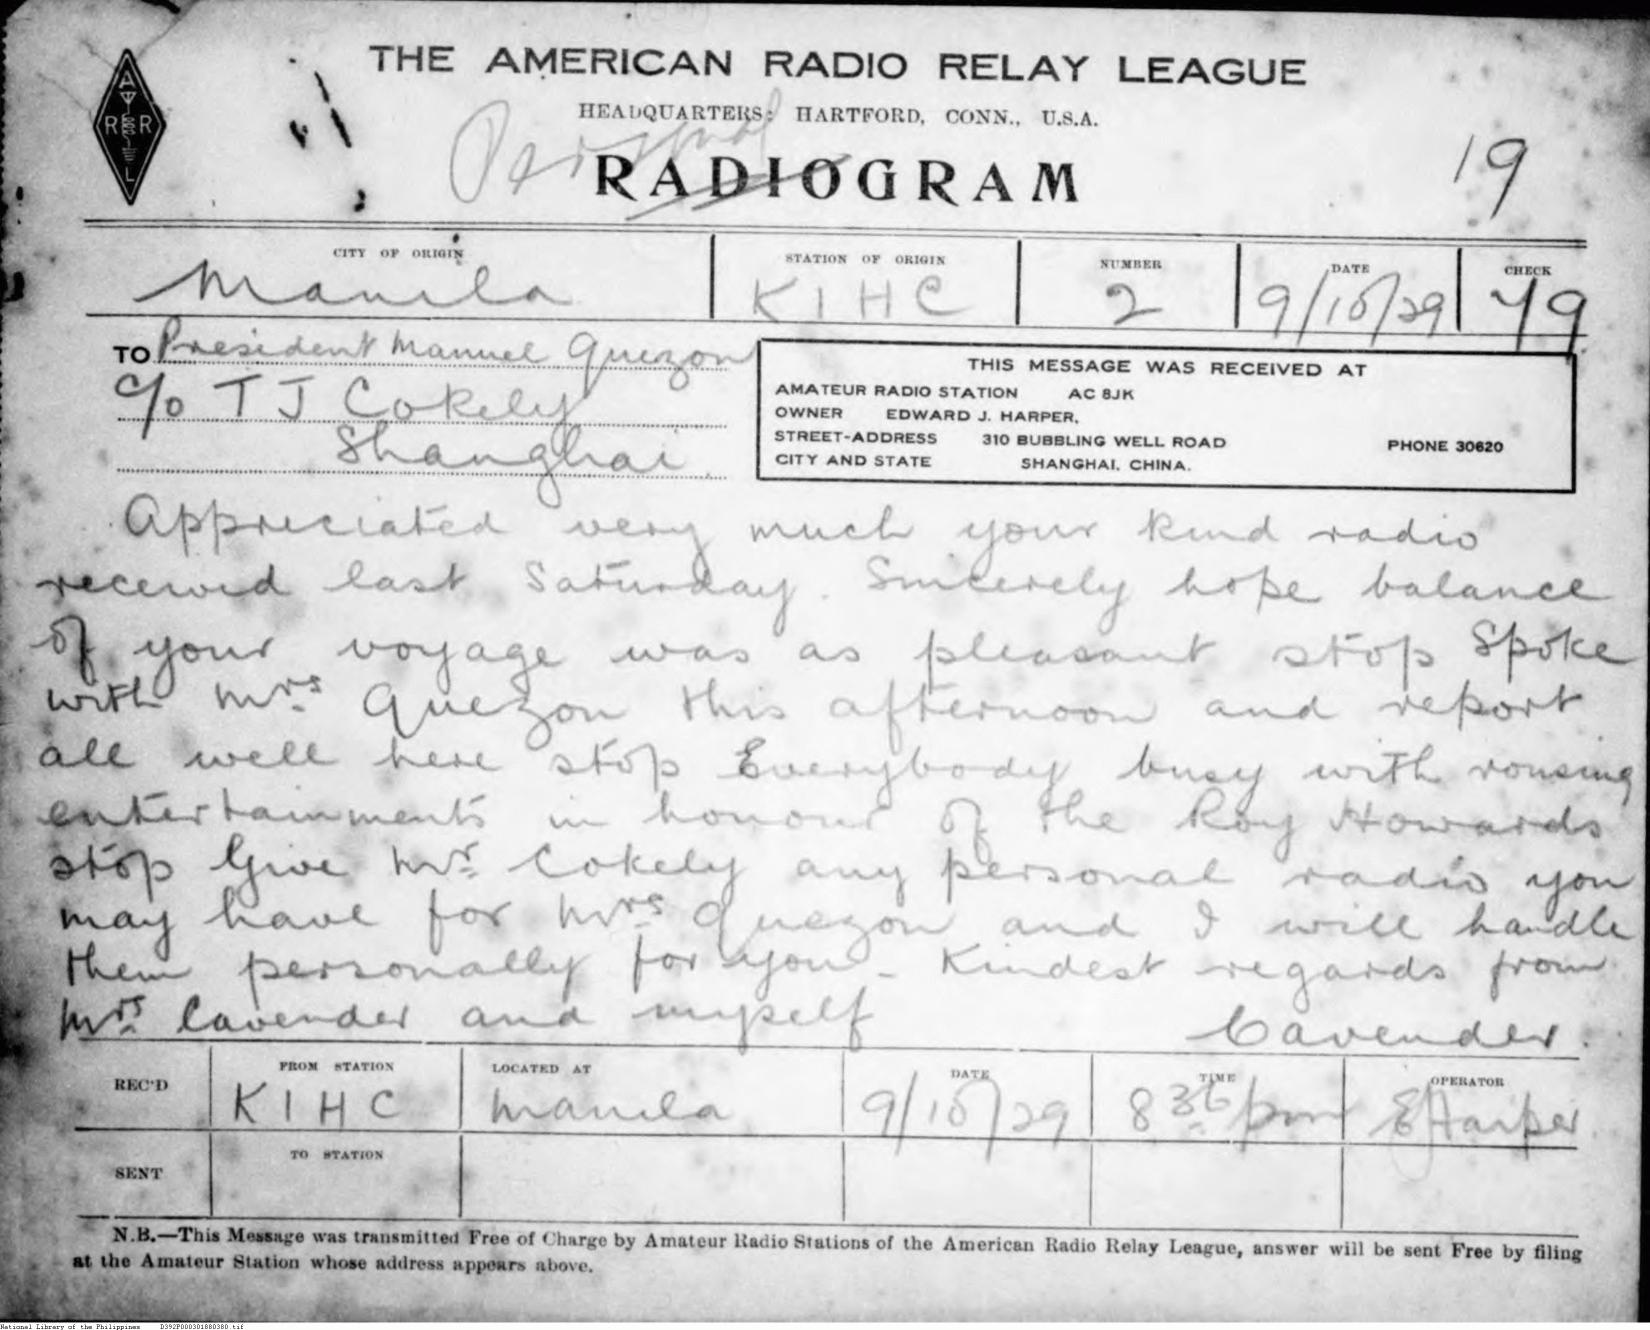 THE AMERICAN RADIO RELAY LEAGUE
HEADQUARTERS: HARTFORD, CONN., U.S.A.
Personal
RADIOGRAM
19
CITY OF ORIGIN STATION OF ORIGIN NUMBER DATE CHECK
Manila KIHC 2 9/10/29 79
TO President Manuel Quezon
c/o T J Cokely
Shanghai
THIS MESSAGE WAS RECEIVED AT
AMATEUR RADIO STATION AC 8JK
OWNER EDWARD J. HARPER,
STREET-ADDRESS 310 BUBBLING WELL ROAD PHONE 30620
CITY AND STATE SHANGHAI, CHINA.
Appreciated very much your kind radio
received last Saturday. Sincerely hope balance
of your voyage was as pleasant stop Spoke
with Mrs Quezon this afternoon and report
all well here stop Everybody busy with rousing
entertainments in honour of the Roy Howards
stop Give Mr. Cokely any personal radio you
may have for Mrs. Quezon and I will handle
them personally for you - Kindest regards from
Mrs. Cavender and myself Cavender.
REC'D FROM STATION LOCATED AT DATE TIME OPERATOR
KIHC Manila 9/10/29 8 36 pm EJHarper
SENT TO STATION
N.B.—This Message was transmitted Free of Charge by Amateur Radio Stations of the American Radio Relay League, answer will be sent Free by filing
at the Amateur Station whose address appears above.
National Library of the Philippines D392P000301880380.tif